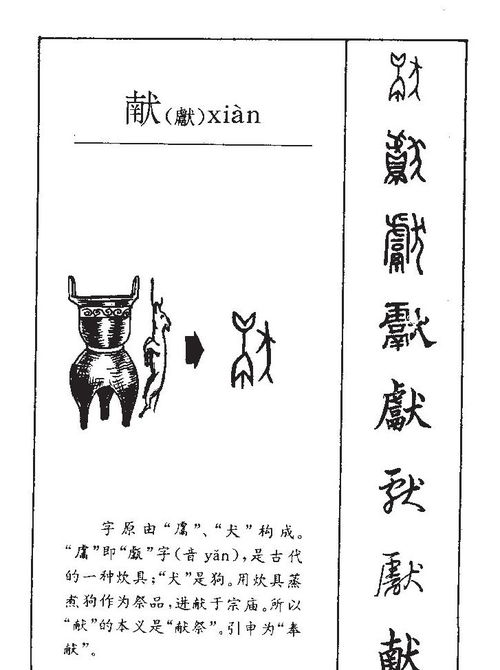 献(獻)xiàn
字原由“鬳”、“犬”构成。
“鬳”即“甗”字(音 yǎn),是古代
的一种炊具;“犬”是狗。用炊具蒸
煮狗作为祭品,进献于宗庙。所以
“献”的本义是“献祭”。引申为“奉
献”。
獻
獻
獻
獻
献